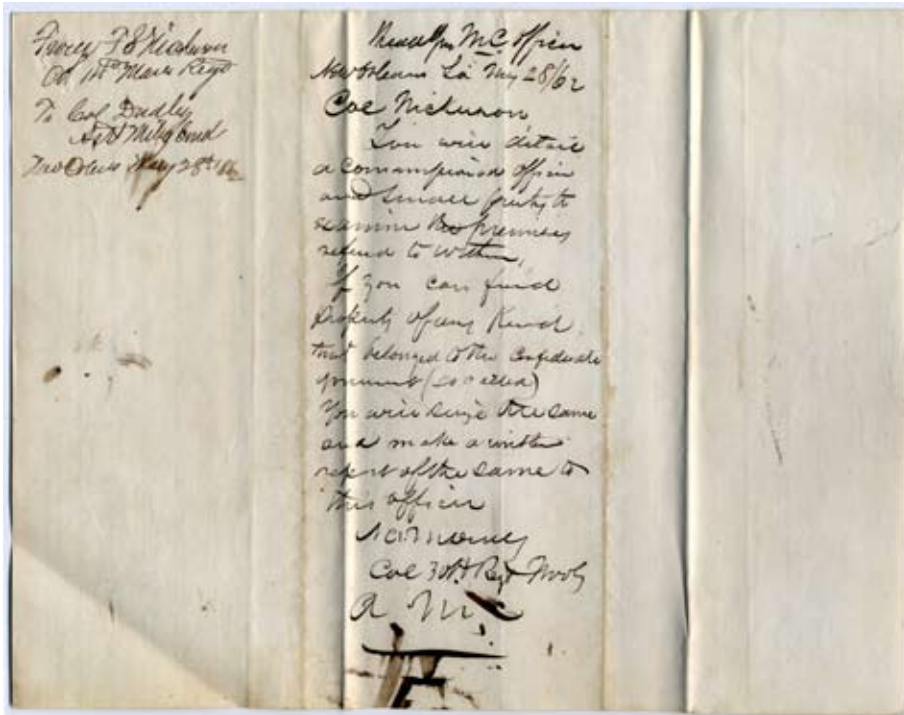 From F S Nickerson
Col 14th Maine Regt
To Col Dudley
Act Milty Comd
New Orleans May 28th 1862
Head Qrs M C Office
New Orleans La May 28/62
Col Nickerson
You will detail
a commissioned officer
and small party to
examine the premises
referred to within,
If you can find
property of any Kind
that belonged to the Confederate
government (so called)
You will seize the same
and make a written
report of the same to
this office
Col 30th Regt
A M C